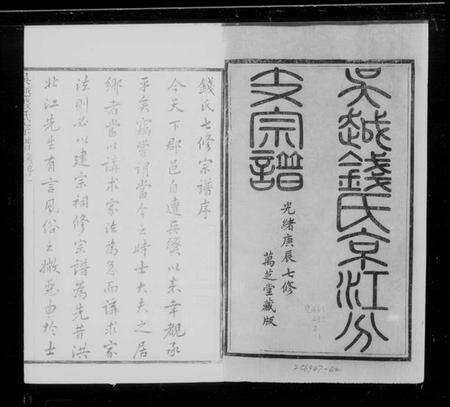 吳越錢氏京江分
支宗譜
光緒庚辰七修
萬芝堂藏版
錢氏七修宗譜序
今天下郡邑自遭兵燹以來幸覩承
平矣竊嘗謂當今之時士大夫之居
鄉者當以講求家法為急而講求家
法則必以建宗祠修宗譜為先昔洪
北江先生有言風俗之媺惡由於士